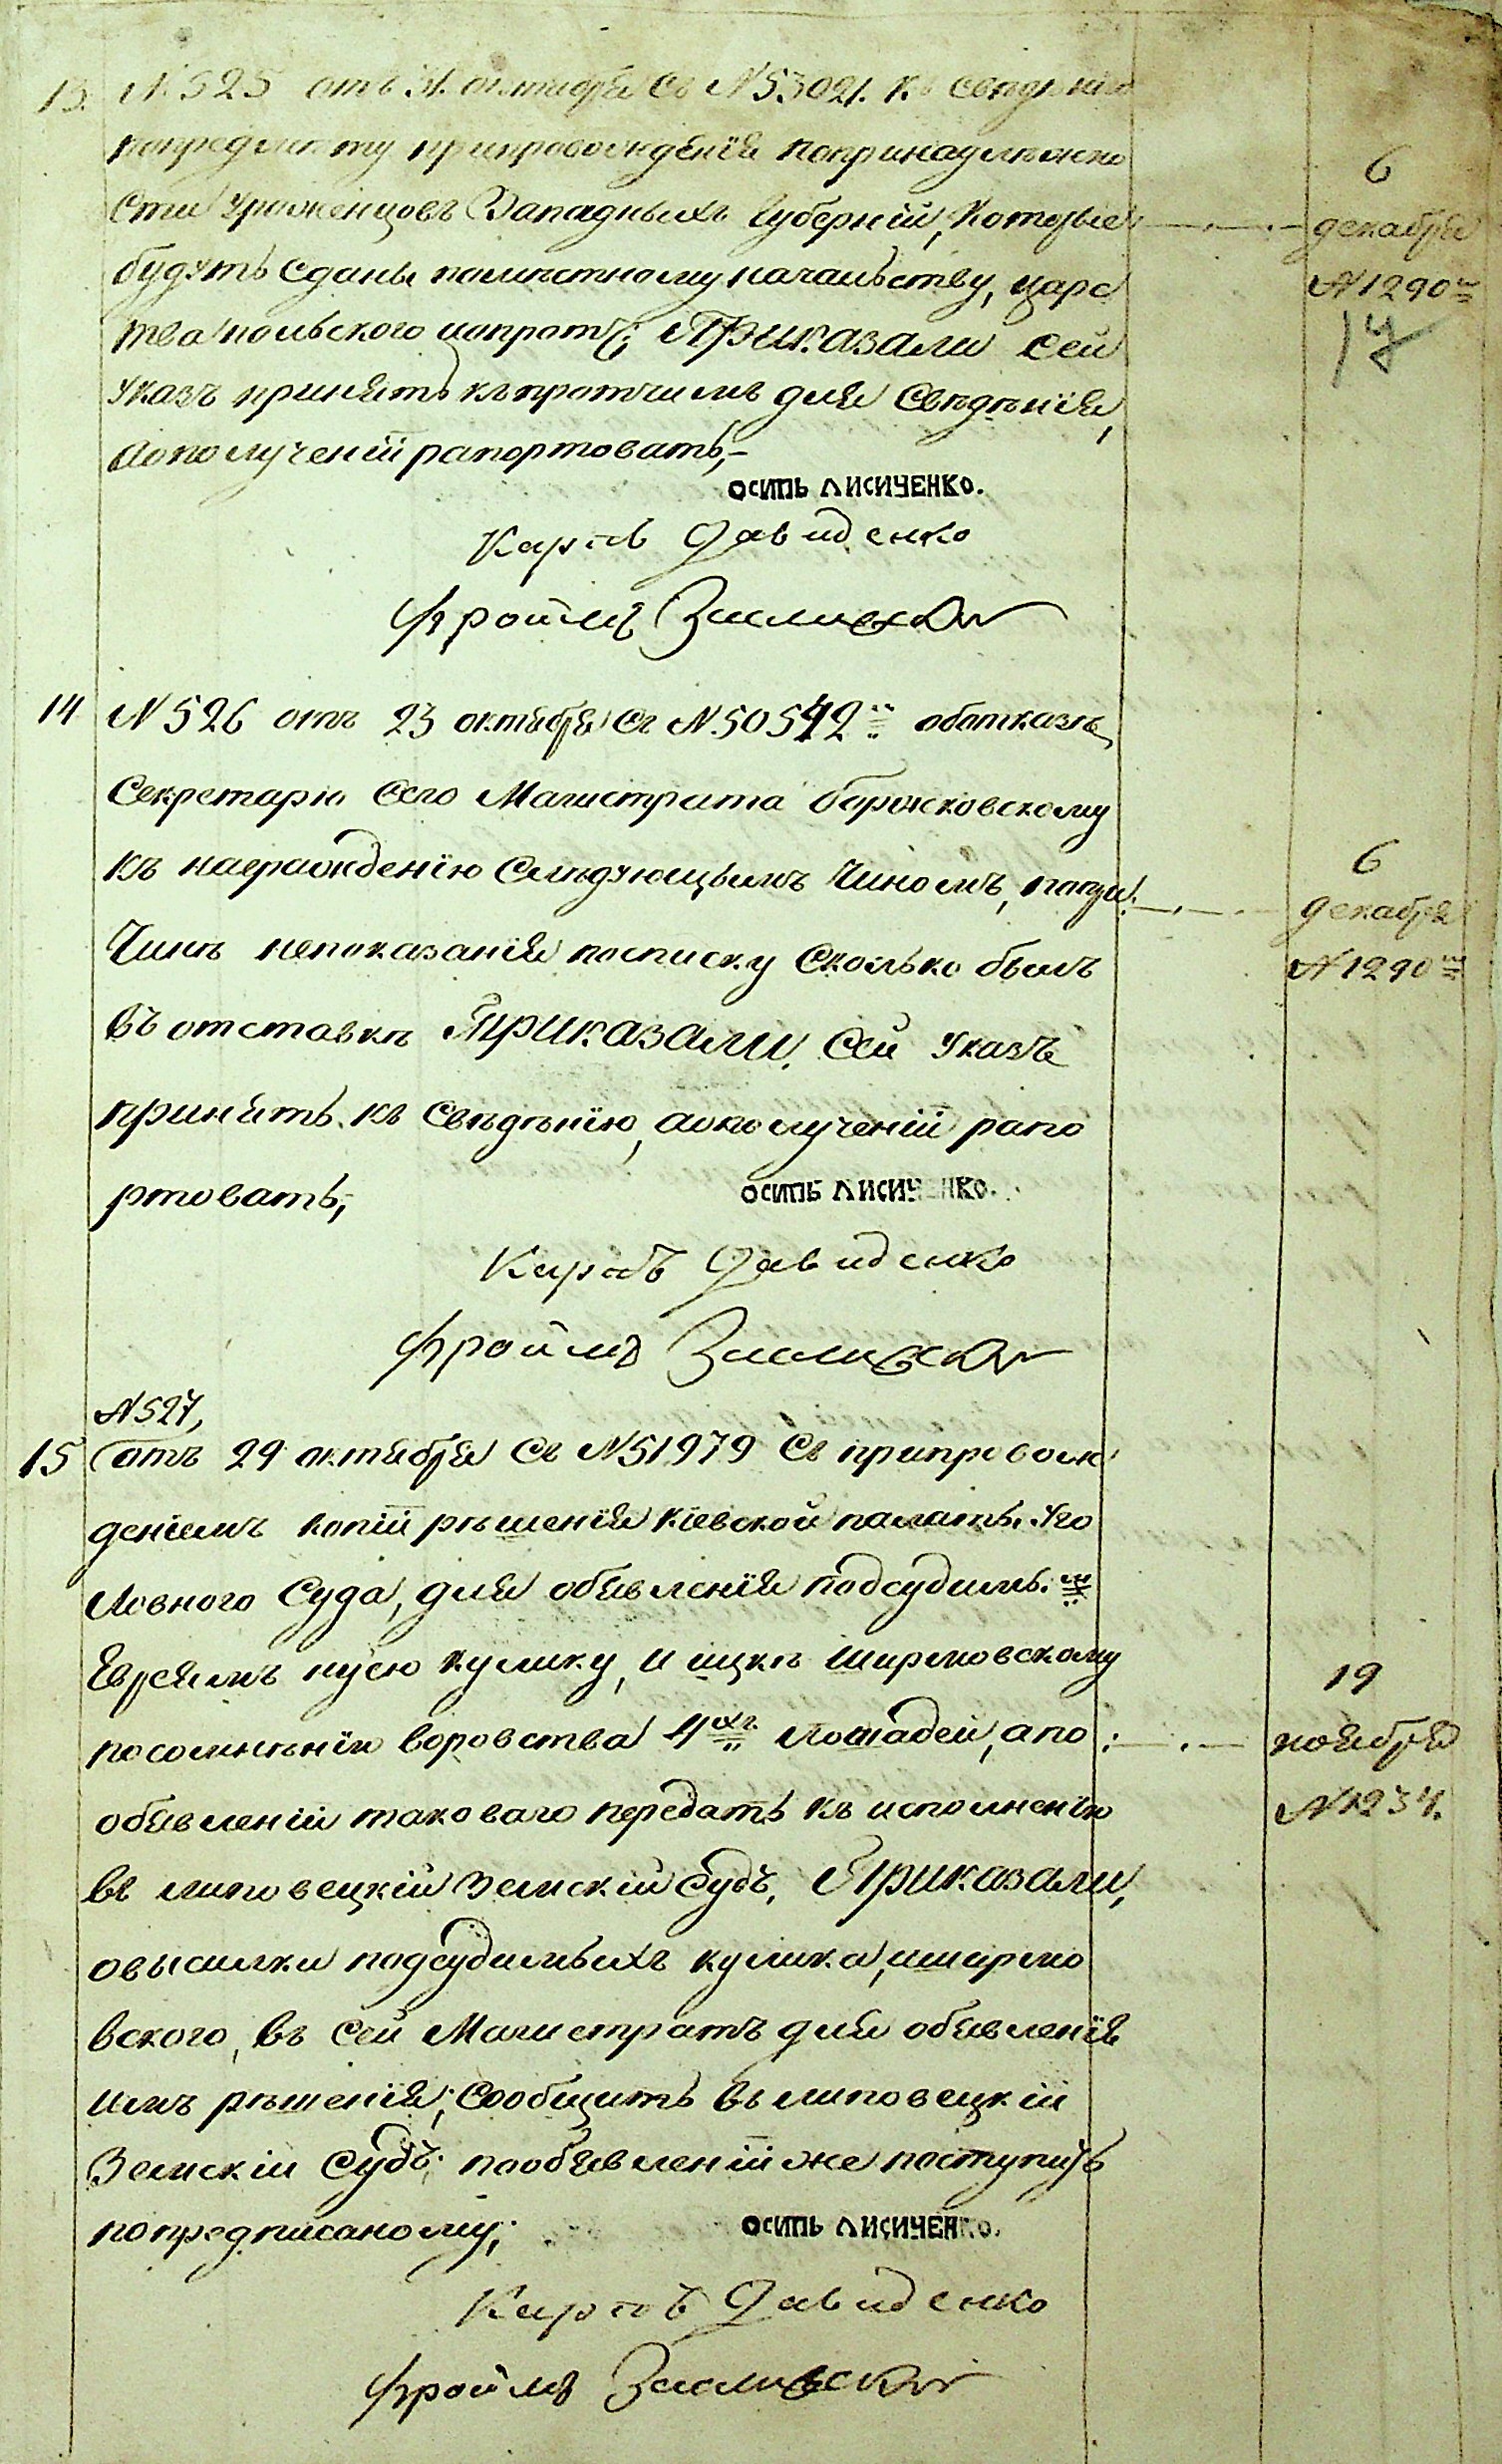 13. N 525 отъ 31. октября съ N 53021. Къ сведению
попредмету припровождения попринадлежно
сти уроженцовъ Западныхъ Губерний, которые
будутъ сданы поместному начальству, царс
тва польского ипротч; Приказали сей
указъ принять къ протчимъ для сведения,
аополучении рапортовать,-
6
декабря
N 1290м
17
ОСИПЬ ЛИСИЧЕНКО.
Карпъ Давиденко
Фроймъ
14 N 526 отъ 23 октября съ N. 50542м оботказе,
Секретарю сего Магистрата Боржковскому
къ награждению следующымъ Чиномъ, попри
Чине непоказания посписку сколько былъ
въ отставке Приказали, Сей указъ
принять къ сведению, аополучении рапо
ртовать;
6
декабря
N 1290м
ОСИПЬ ЛИСИЧЕНКО.
Карпъ Давиденко
Фроймъ
N 527,
15 отъ 29 октября съ N 51979 съ припровож
дениемъ копии решения Киевской палаты Уго
ловного Суда, для обявления подсудимым
Евреямъ нусю кулику, и ицке ширмовскому
посомнению воровства 4хъ лошадей, а по
обявлении таковаго передать къ исполнению
въ липовецкий Земский Судъ, Приказали,
овысилки подсудимыхъ кулика, иширмо
вского, въ сей Магистратъ для обявления
имъ решения; Сообщить въ липовецкий
Земский Судъ; пообявлении же поступить
попредписаному;
19
ноября
N 1234.
ОСИПЬ ЛИСИЧЕНКО.
Карпъ Давиденко
Фроймъ